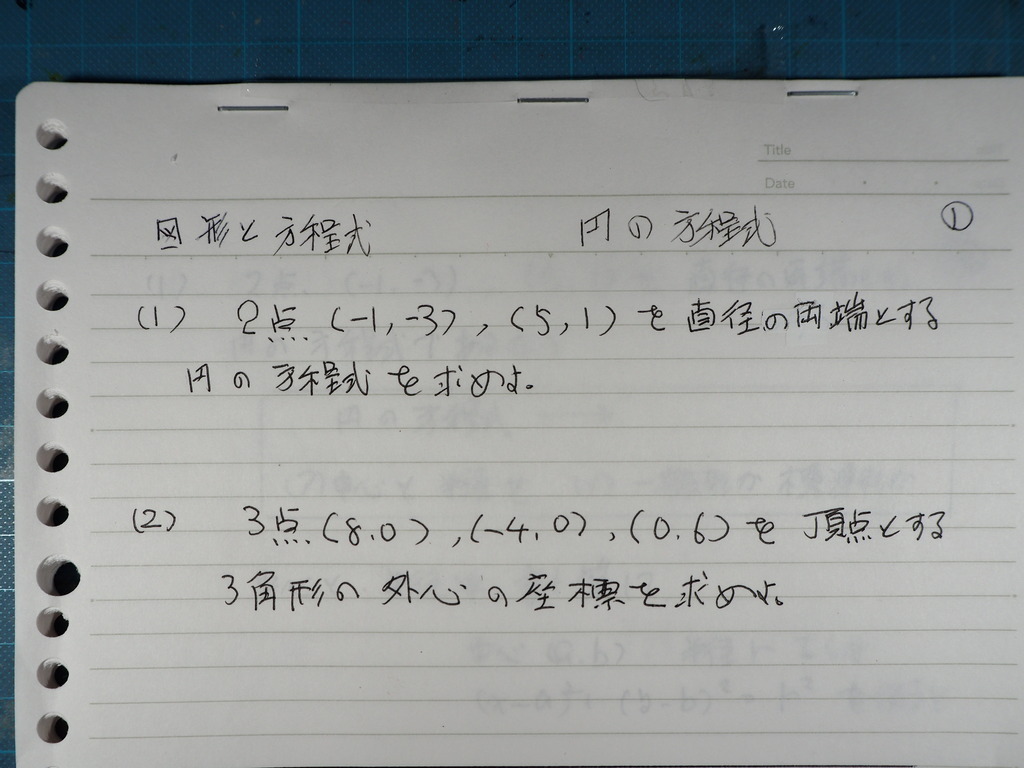 Title
Date
図形と方程式 円の方程式 ①
(1) 2点 (-1,-3), (5,1) を 直径の両端とする
円の方程式を求めよ。
(2) 3点(8,0), (-4,0), (0,6) を 頂点とする
3角形の外心の座標を求めよ。